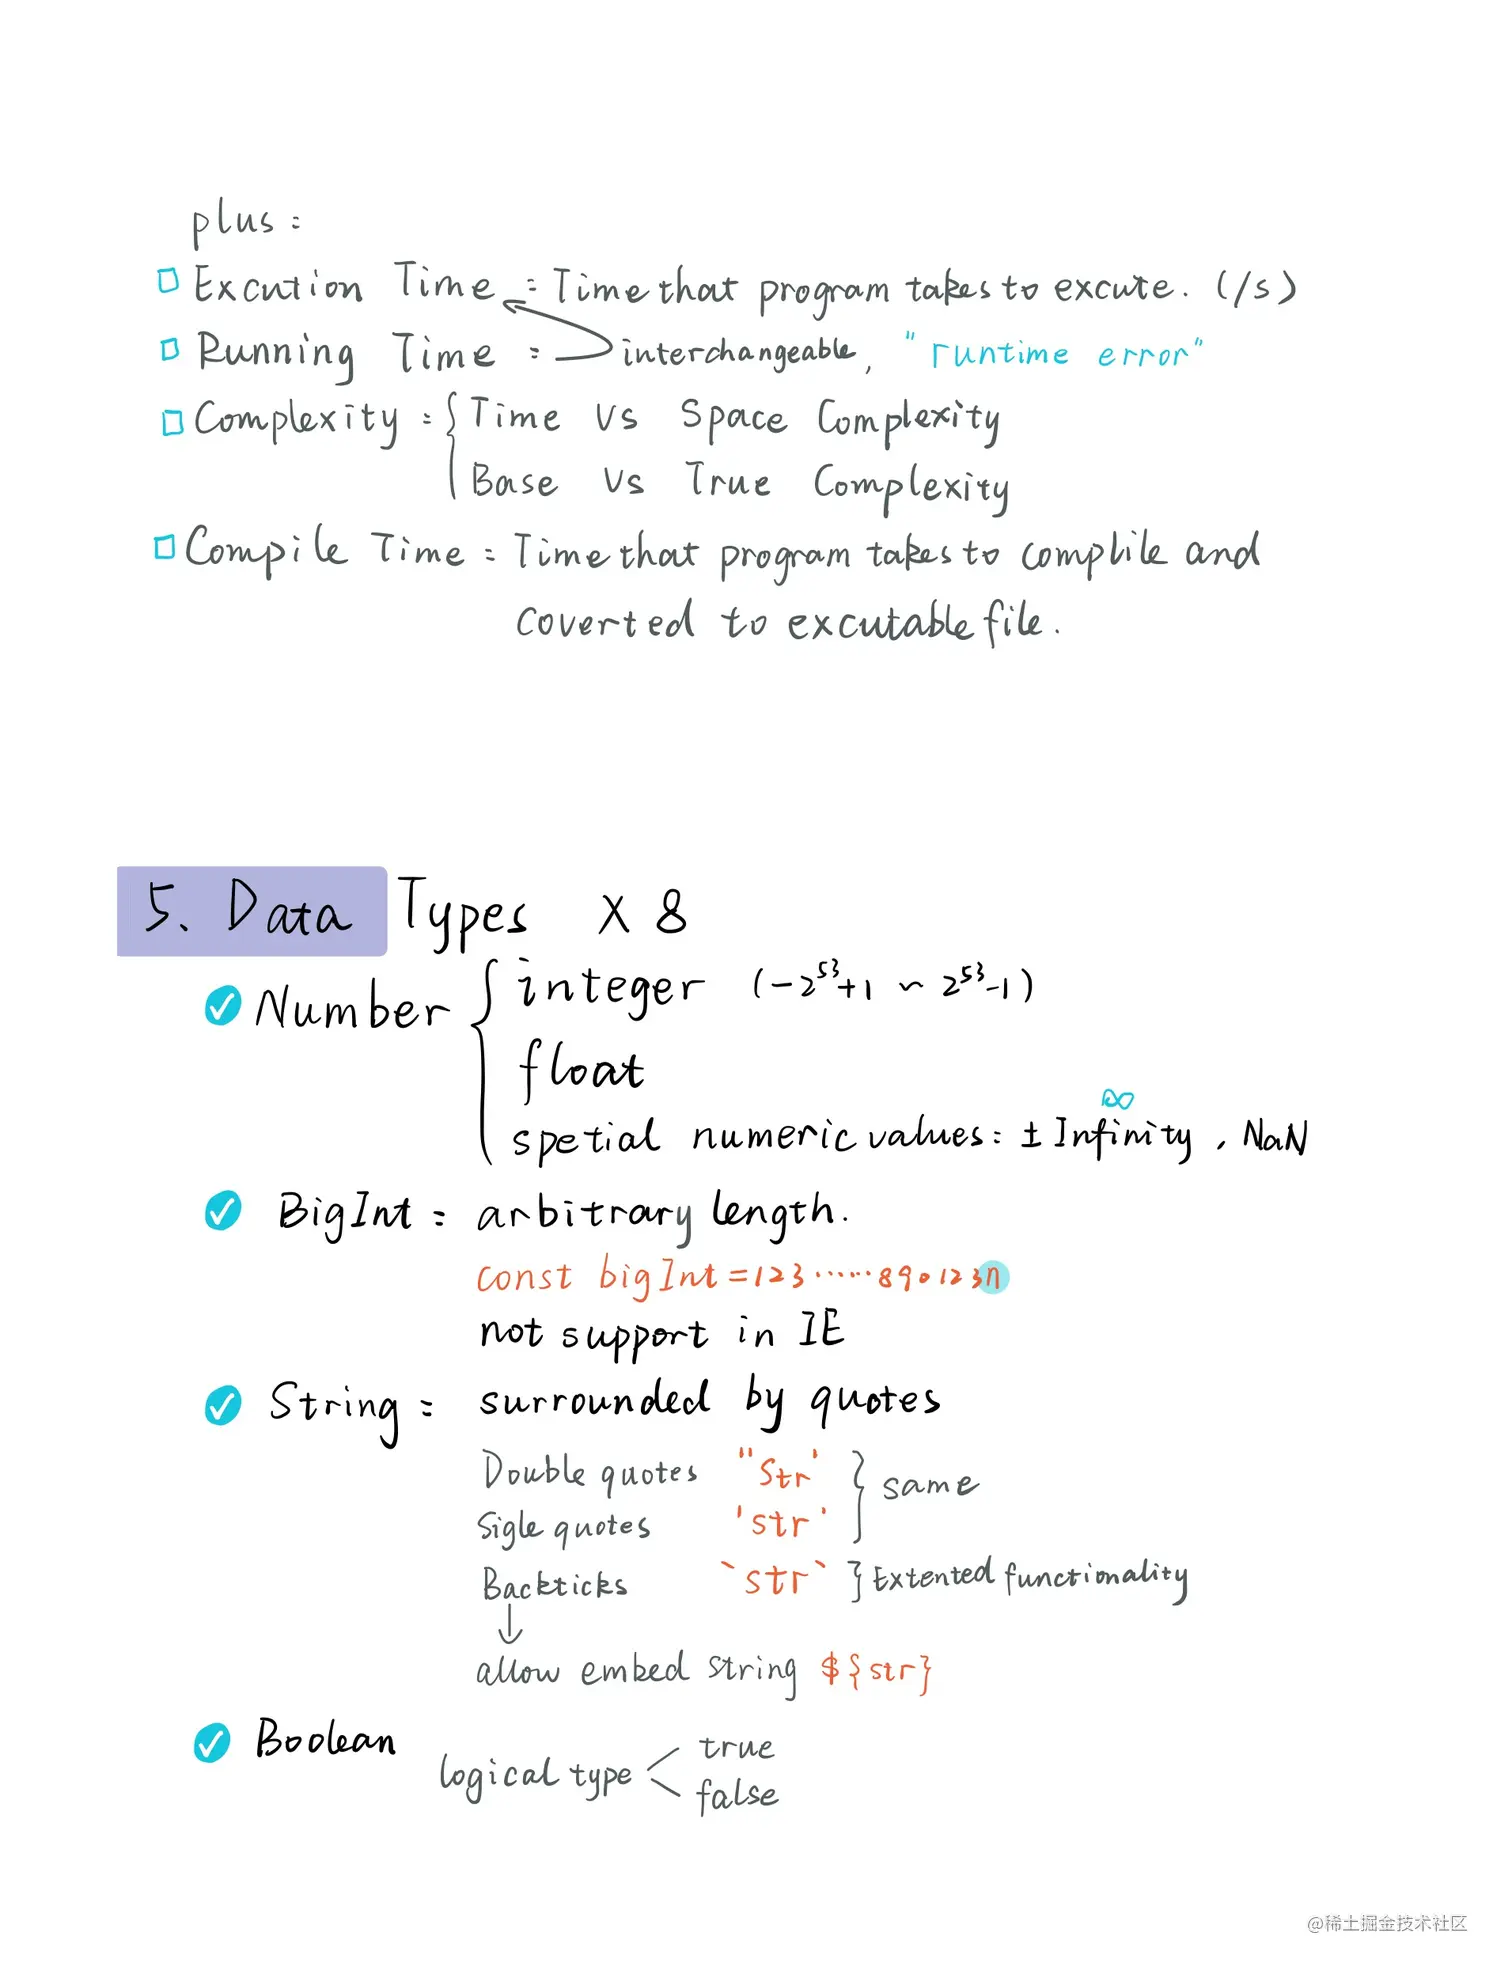 plus:
Excution Time : Time that program takes to excute. (/s)
Running Time : interchangeable, "runtime error"
Complexity : { Time Vs Space Complexity
Base Vs True Complexity
Compile Time : Time that program takes to complile and
coverted to excutable file.
5. Data Types X 8
Number { integer (-2^53+1 ~ 2^53-1)
float
∞
spetial numeric values: ± Infinity, NaN
BigInt : arbitrary length.
const bigInt = 123······890123n
not support in IE
String : surrounded by quotes
Double quotes "Str' } same
Sigle quotes 'str'
Backticks `str` } Extented functionality
↓
allow embed string ${str}
Boolean
logical type < true
false
@稀土掘金技术社区